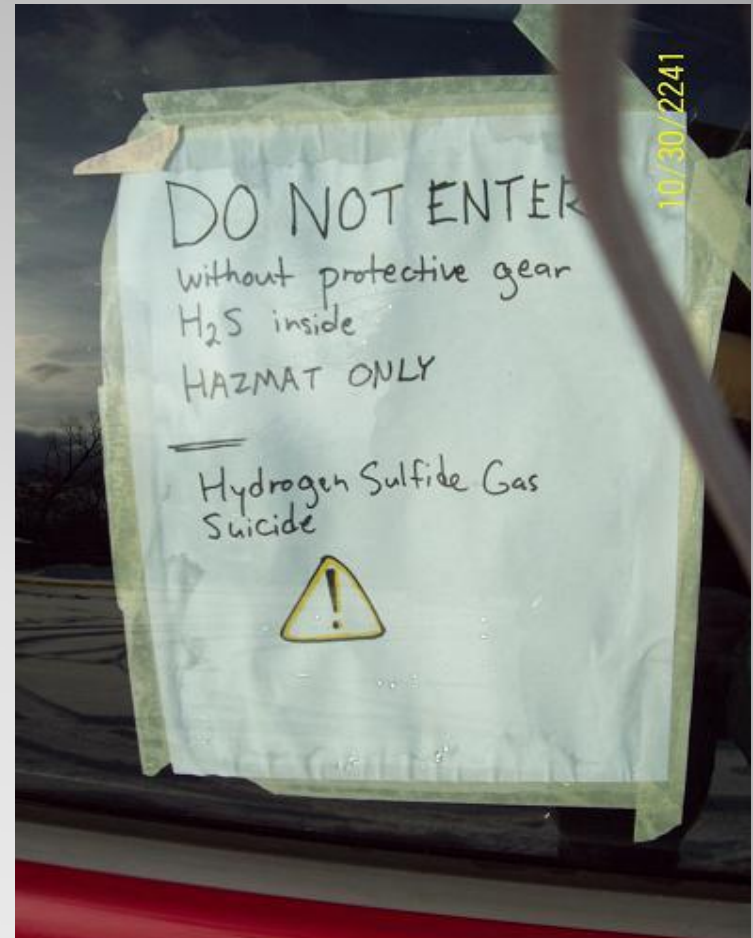 DO NOT ENTER
without protective gear
H₂S inside
HAZMAT ONLY
Hydrogen Sulfide Gas
Suicide
!
10/30/2241